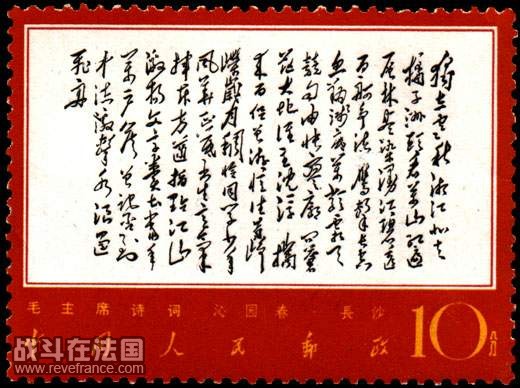 独立寒秋湘江北去
橘子洲头看万山红遍
层林尽染漫江碧透
百舸争流鹰击长空
鱼翔浅底万类霜天
竞自由怅寥廓问苍
茫大地谁主沉浮 携
来百侣曾游忆往昔峥
嵘岁月稠恰同学少年
风华正茂书生意气
挥斥方遒指点江山
激扬文字粪土当年
万户侯曾记否到
中流击水浪遏
飞舟
毛主席诗词 沁园春 長沙
中国人民邮政 10分
战斗在法国
www.revefrance.com